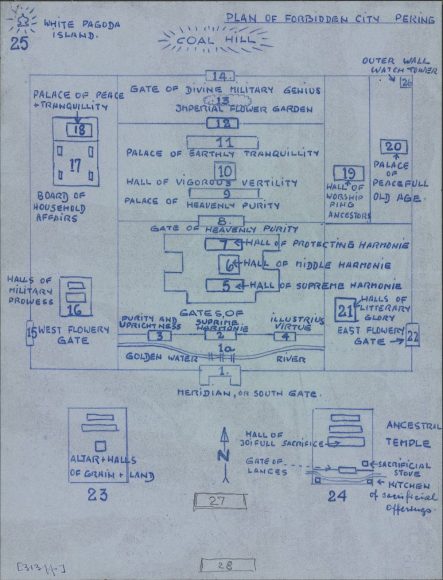 WHITE PAGODA
ISLAND.
25
PLAN OF FORBIDDEN CITY PEKING
COAL HILL
OUTER WALL
WATCH TOWER
26
14.
GATE OF DIVINE MILITARY GENIUS
13
IMPERIAL FLOWER GARDEN
12
PALACE OF PEACE
+ TRANQUILLITY
18
17
BOARD OF
HOUSEHOLD
AFFAIRS
11
PALACE OF EARTHLY TRANQUILLITY
10
HALL OF VIGOROUS VERTILITY
9
PALACE OF HEAVENLY PURITY
8.
GATE OF HEAVENLY PURITY
19
HALL OF
WORSHIP
PING
ANCESTORS
20
PALACE
OF
PEACEFULL
OLD AGE.
7 HALL OF PROTECTING HARMONIE
6 HALL OF MIDDLE HARMONIE
5 HALL OF SUPREME HARMONIE
HALLS OF
MILITARY
PROWESS
16
21
HALLS OF
LITTERARY
GLORY
15 WEST FLOWERY
GATE
EAST FLOWERY
GATE
22
GATES OF
PURITY AND
UPRIGHTNESS
SUPREME
HARMONIE
ILLUSTRIUS
VIRTUE
3
2
4
GOLDEN WATER
1a
RIVER
1.
MERIDIAN, OR SOUTH GATE.
ALTAR + HALLS
OF GRAIN + LAND
23
N
27
HALL OF
JOIFULL SACRIFICE
GATE OF
LANCES
ANCESTRIL
TEMPLE
SACRIFICIAL
STOVE
KITCHEN
of sacrificial
Offerings.
24
28